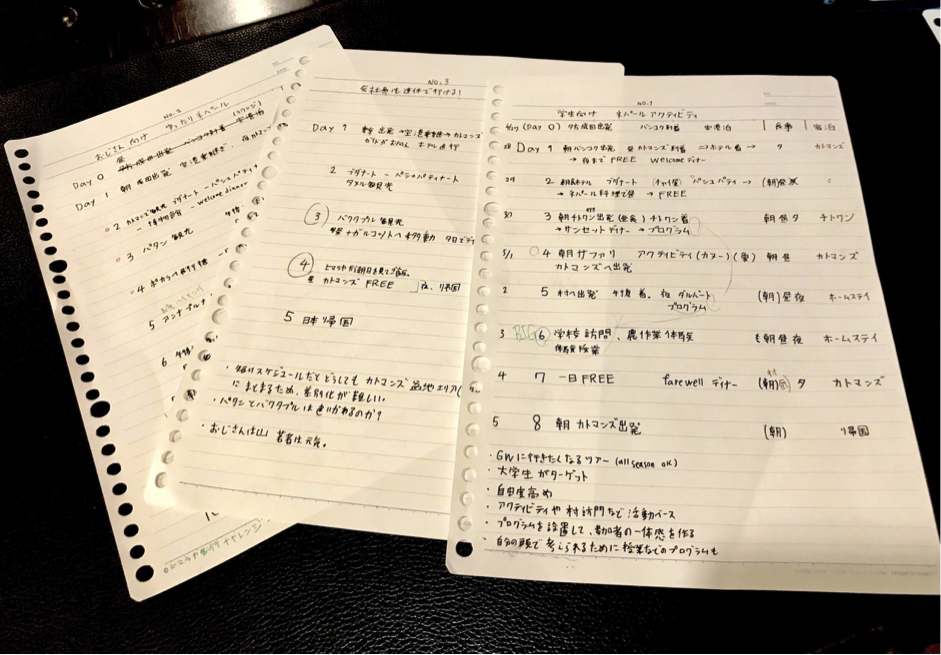 NO.2
おじさん向け ゆったりネパール
Day 0
Day 1 朝 成田出発 空港乗継ぎ、
2 カトマンズ観光 ブダナート - パシュパティナート
- 博物館 - welcome dinner
3 パタン 観光
4 ポカラへ
5 アンナプルナ
6 午後
NO.3
会社員も連休で行ける!
Day 1 朝 出発 → 空港乗継 → カトマンズ
ホテル直行
2 ブダナート - パシュパティナート
タメル観光
3 バクタプル観光
ナガルコットへ移動 夕日
4 ヒマラヤから朝日を見てご飯。
昼 カトマンズ FREE 夜、帰国
5 日本帰国
・短いスケジュールだとどうしてもカトマンズ盆地エリア(
にまとまるため、差別化が難しい。
・パタンとバクタプルは色いかれるのか?
・おじさんは山 若者は元気。
NO.1
学生向け ネパール アクティビティ
(Day 0) 夕方成田出発 バンコク到着 空港泊 食事 宿泊
28 Day 1 朝 バンコク出発 昼 カトマンズ到着 → ホテル着 → 夕 カトマンズ
→ 夜まで FREE welcome ディナー
29 2 朝食ホテル ブダナート (チャイ屋) パシュパティ → (朝) 〃
→ ネパール料理で昼 → FREE
30 3 朝チトワン出発 (昼食) チトワン着 朝昼夕 チトワン
→ サンセットディナー → プログラム
5/1 4 朝サファリ アクティビティ (カヌー) (象) 朝昼 カトマンズ
カトマンズへ出発
2 5 村へ出発 午後着。夜 ダルバート (朝)昼夜 ホームステイ
プログラム
3 BIG 6 学校訪問、農作業体験 朝昼夜 ホームステイ
授業
4 7 一日FREE farewell ディナー (朝) 夕 カトマンズ
5 8 朝 カトマンズ出発 (朝) 帰国
・GWに行きたくなるツアー (all season ok)
・大学生がターゲット
・自由度高め
・アクティビティや村訪問など活動ベース
・プログラムを設置して、参加者の一体感を作る
・自分の頭で考えられるために授業などのプログラムも